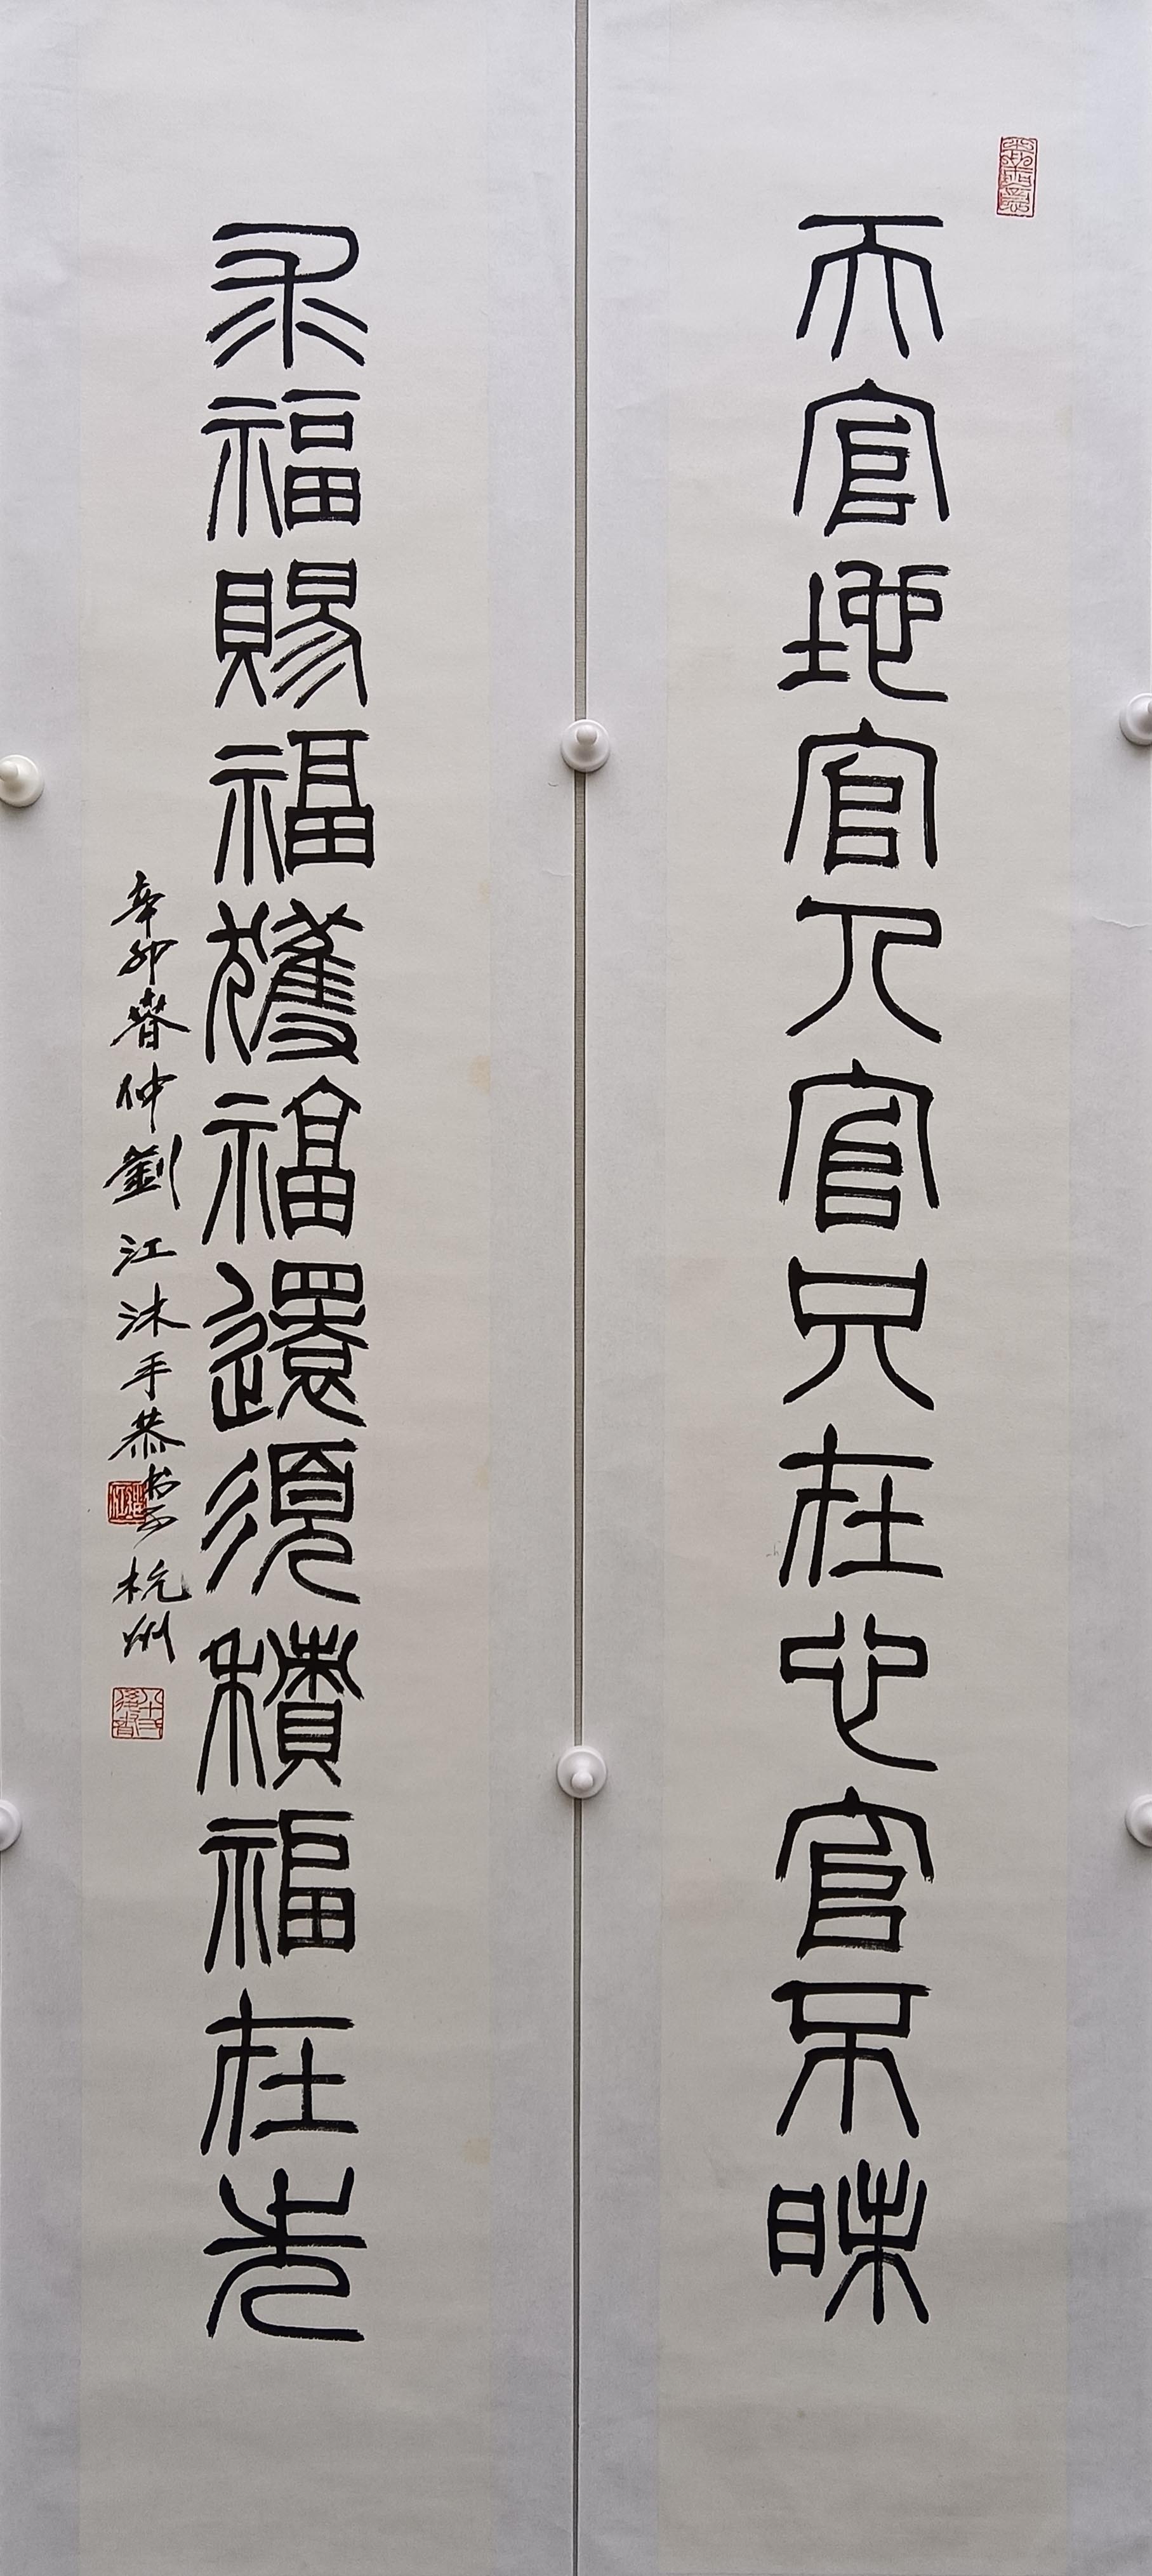 天官地官人官只在心官不昧
求福賜福獲福還須積福在先
辛卯春仲劉江沐手恭書於杭州